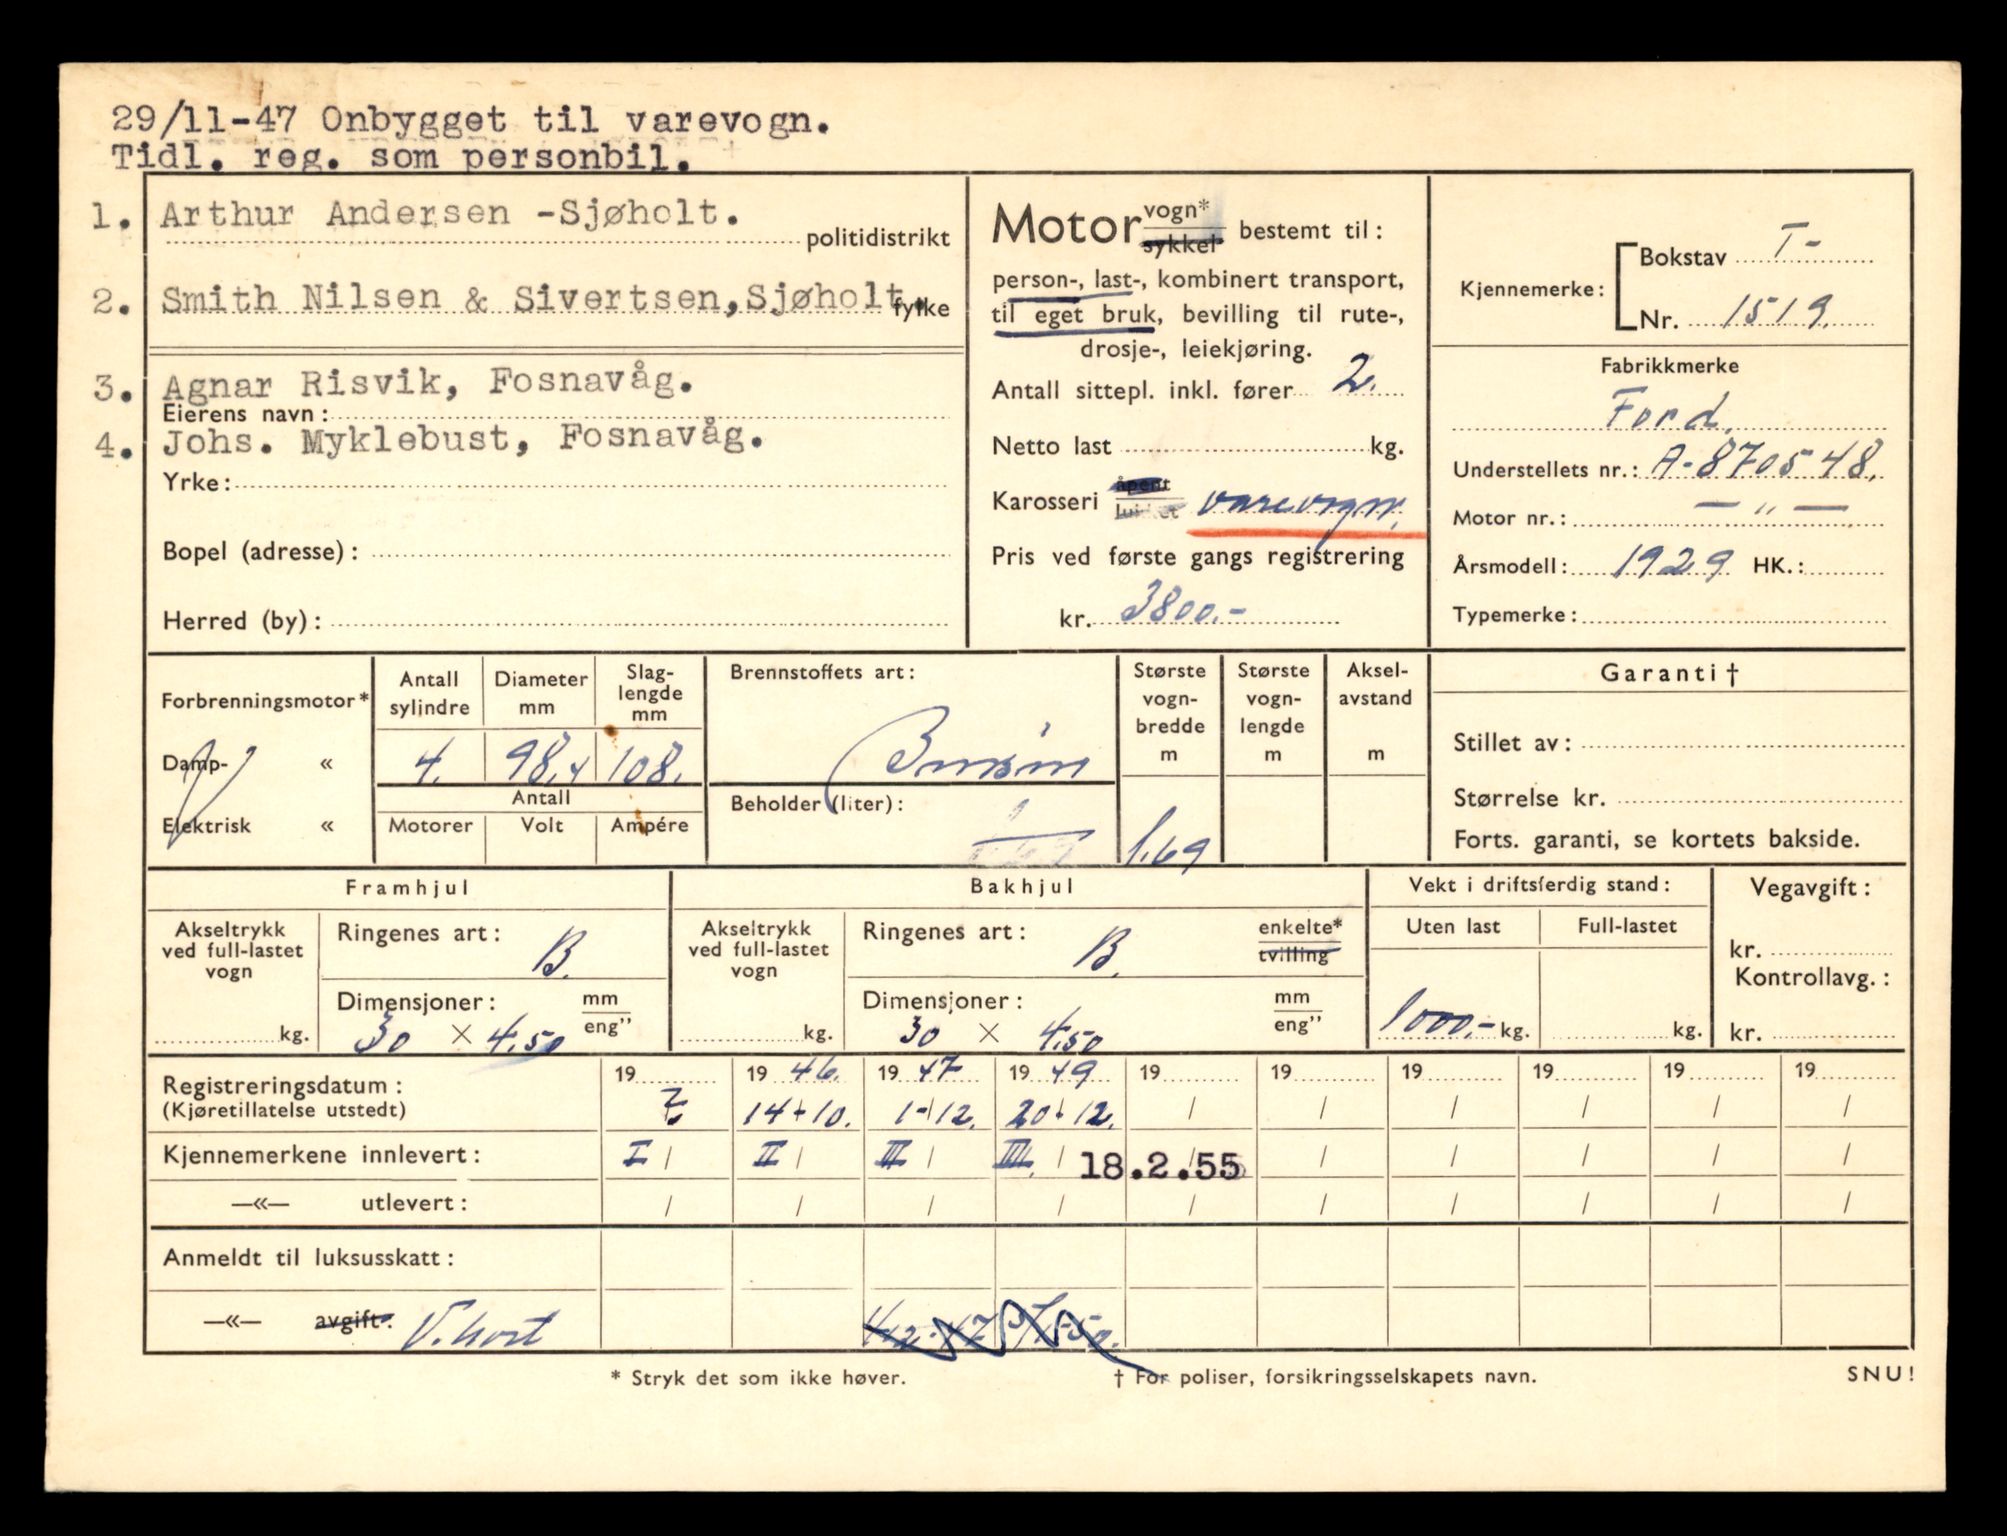 29/11-47 Onbygget til varevogn.
Tidl. reg. som personbil.
1. Arthur Andersen -Sjøholt.
politidistrikt
2. Smith Nilsen & Sivertsen, Sjøholt.
fylke
3. Agnar Risvik, Fosnavåg.
Eierens navn:
4. Johs. Myklebust, Fosnavåg.
Yrke:
Bopel (adresse):
Herred (by):
Motor vogn*
sykkel bestemt til:
person-, last-, kombinert transport,
til eget bruk, bevilling til rute-,
drosje-, leiekjøring.
Antall sittepl. inkl. fører 2.
Netto last kg.
Karosseri åpent
lukket varevogn.
Pris ved første gangs registrering
kr. 3800.-
Kjennemerke: Bokstav T-
Nr. 1519.
Fabrikkmerke
Ford.
Understellets nr.: A-870548.
Motor nr.: — " —
Årsmodell: 1929 HK.:
Typemerke:
Forbrenningsmotor*
Damp- «
Elektrisk «
Antall sylindre
Diameter mm
Slag-lengde mm
4. 98.4 108.
Antall
Motorer Volt Ampére
Brennstoffets art:
Bensin
Beholder (liter):
Største vogn-bredde m
1.69
Største vogn-lengde m
Aksel-avstand m
Garanti †
Stillet av:
Størrelse kr.
Forts. garanti, se kortets bakside.
Framhjul
Akseltrykk ved full-lastet vogn
kg.
Ringenes art: B.
Dimensjoner: mm
eng"
30 × 4.50
Bakhjul
Akseltrykk ved full-lastet vogn
kg.
Ringenes art: B. enkelte*
tvilling
Dimensjoner: mm
eng"
30 × 4.50
Vekt i driftsferdig stand:
Uten last Full-lastet
1000.- kg. kg.
Vegavgift:
kr.
Kontrollavg.:
kr.
Registreringsdatum: 19 19 46. 19 47 19 49 19 19 19 19 19 19
(Kjøretillatelse utstedt) 14-10. 1-12. 20-12. / / / / / /
Kjennemerkene innlevert: I / II / III / IIII. / 18.2.55 / / / / / /
—«— utlevert: / / / / / / / / / /
Anmeldt til luksusskatt:
—«— avgift:
* Stryk det som ikke høver.
† For poliser, forsikringsselskapets navn.
SNU!